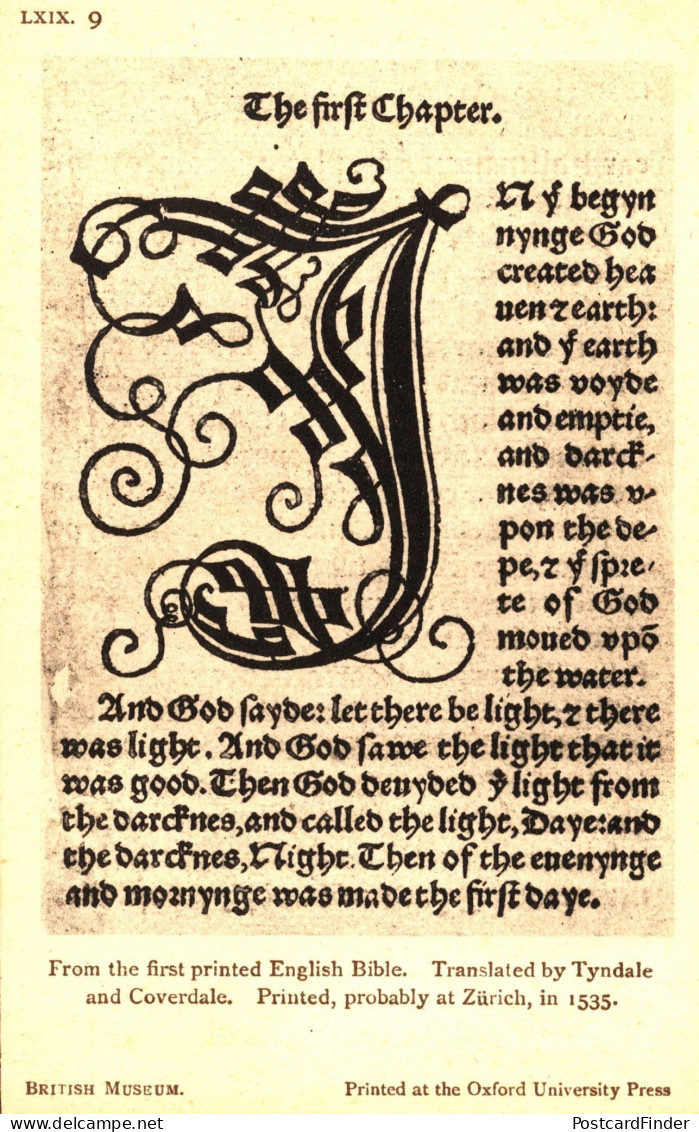 LXIX. 9
The first Chapter.
IN yͤ begyn
nynge God
created hea
uen ⁊ earth:
and yͤ earth
was voyde
and emptie,
and darck⸗
nes was v⸗
pon the de⸗
pe, ⁊ yͤ spre⸗
te of God
moued vpō
the water.
And God sayde: let there be light, ⁊ there
was light. And God sawe the light that it
was good. Then God deuyded yͤ light from
the darcknes, and called the light, Daye: and
the darcknes, Night. Then of the euenynge
and mornynge was made the first daye.
From the first printed English Bible. Translated by Tyndale
and Coverdale. Printed, probably at Zürich, in 1535.
BRITISH MUSEUM. Printed at the Oxford University Press
PostcardFinder